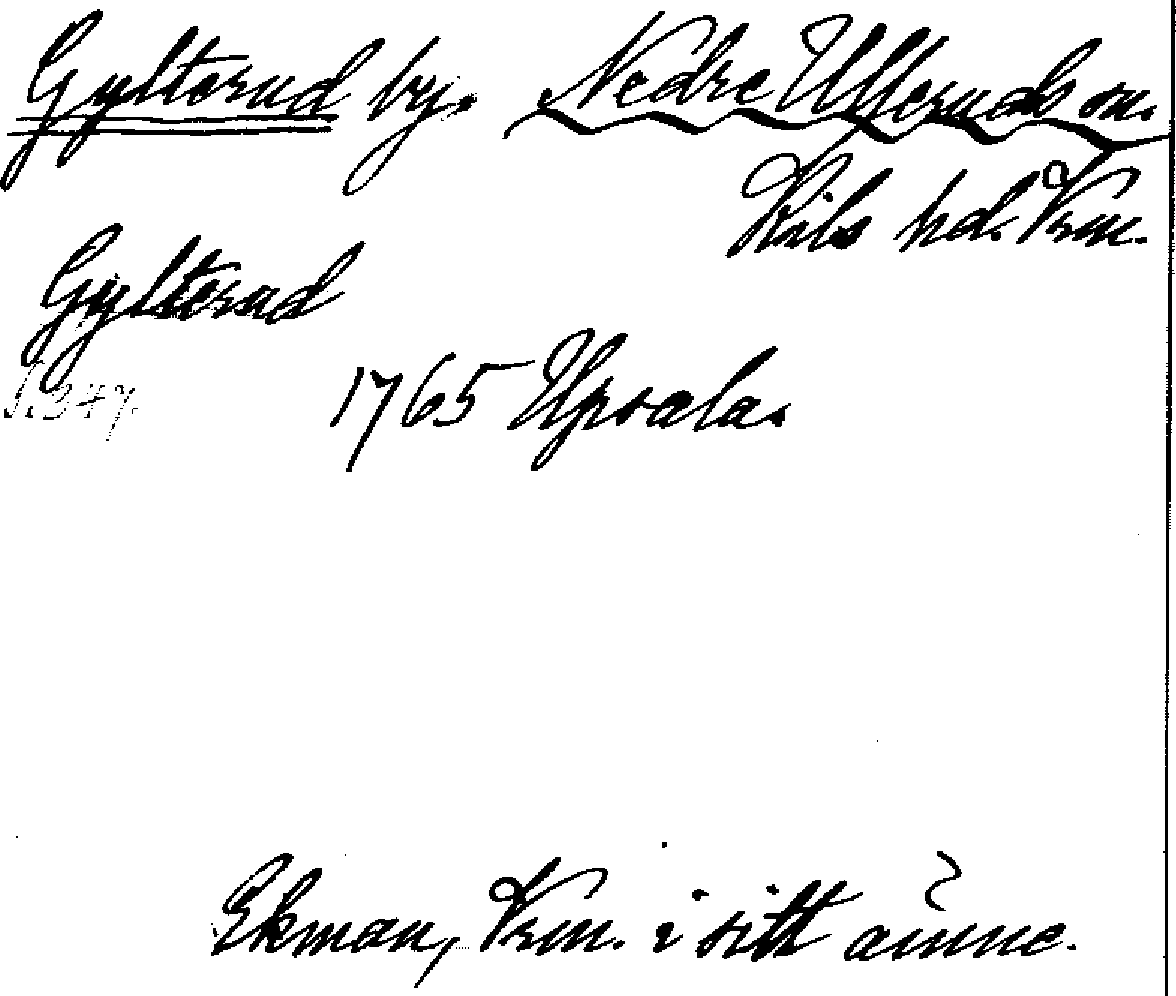 Gylterud by. Nedre Ulleruds sn.
Kils hd. Vrm.
Gylterud
S. 347. 1765 Upsala.
Ekman, Vrm. i sitt ämne.